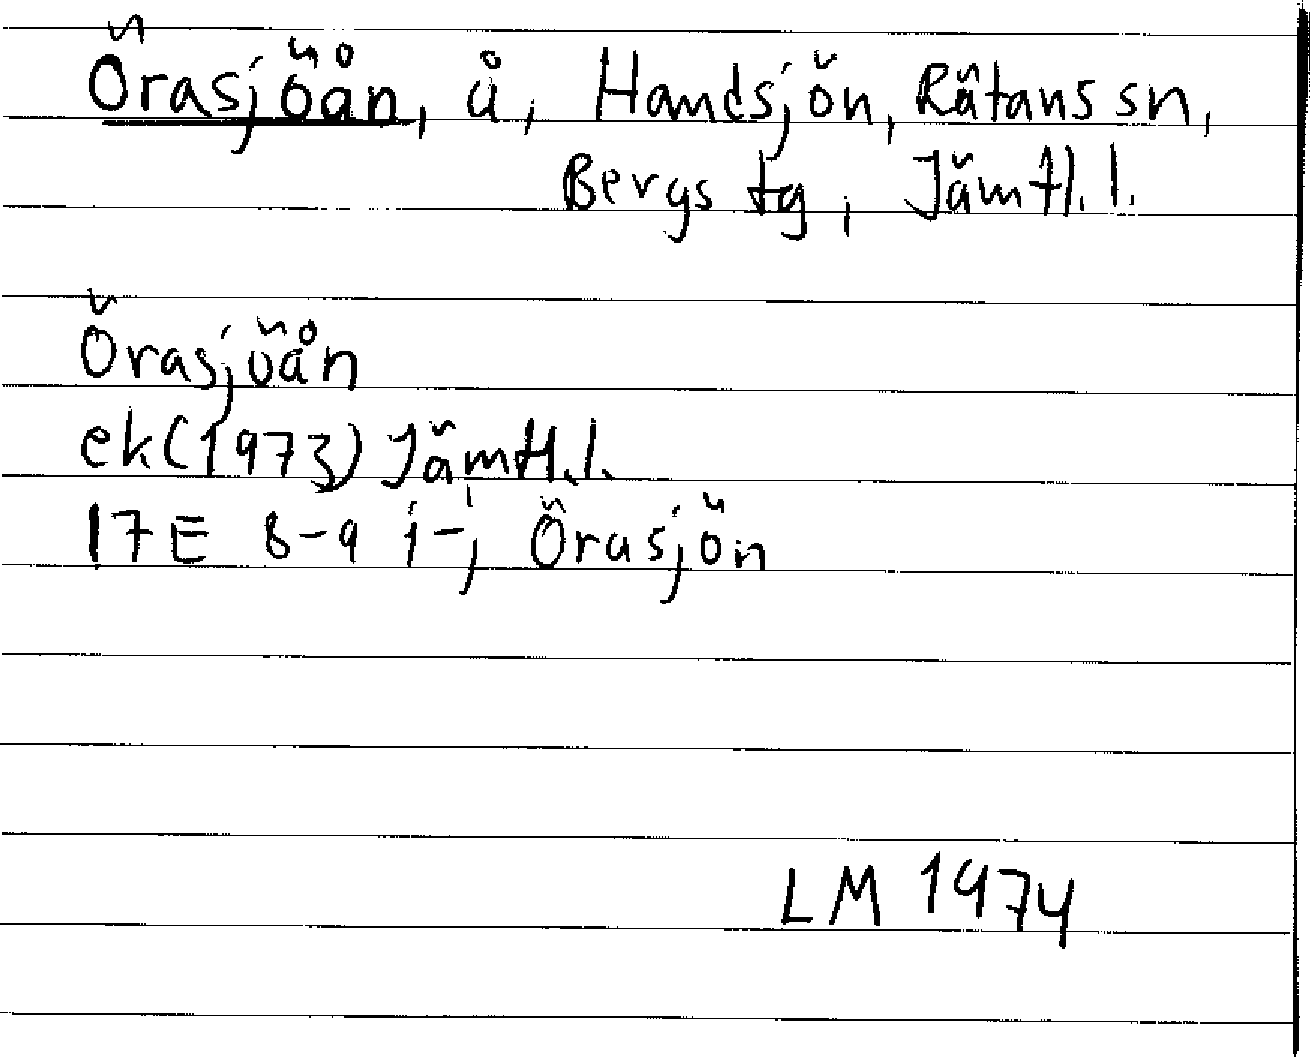 Örasjöån, å, Handsjön, Rätans sn,
Bergs tg, Jämtl. l.
Örasjöån
ek(1973) Jämtl.l.
17E 8-9 i-j Örasjön
LM 1974